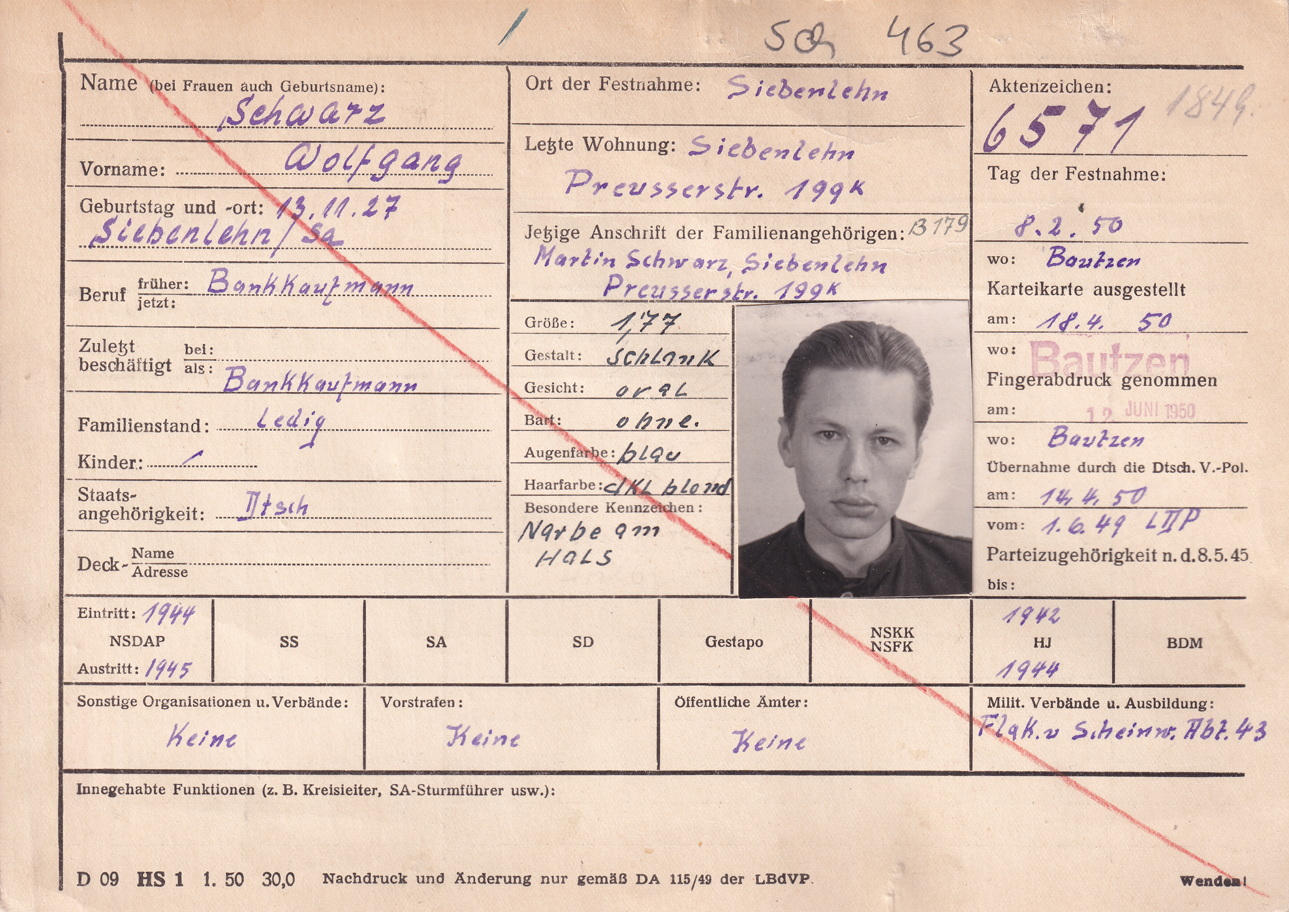 Sch 463
Name (bei Frauen auch Geburtsname):
Schwarz
Vorname: Wolfgang
Geburtstag und -ort: 13.11.27
Siebenlehn/Sa
Beruf früher: Bankkaufmann
jetzt:
Zuletzt beschäftigt bei:
als: Bankkaufmann
Familienstand: Ledig
Kinder: /
Staats-
angehörigkeit: Dtsch
Deck- Name
Adresse
Ort der Festnahme: Siebenlehn
Letzte Wohnung: Siebenlehn
Preusserstr. 199K
Jetzige Anschrift der Familienangehörigen: B 179
Martin Schwarz, Siebenlehn
Preusserstr. 199K
Größe: 1,77
Gestalt: schlank
Gesicht: oval
Bart: ohne.
Augenfarbe: blau
Haarfarbe: dkl blond
Besondere Kennzeichen:
Narbe am
Hals
Aktenzeichen:
6571 1849.
Tag der Festnahme:
8.2.50
wo: Bautzen
Karteikarte ausgestellt
am: 18.4. 50
wo: Bautzen
Fingerabdruck genommen
am: 12 JUNI 1950
wo: Bautzen
Übernahme durch die Dtsch. V.-Pol.
am: 14.4.50
vom: 1.6.49 LDP
Parteizugehörigkeit n. d. 8.5.45
bis:
Eintritt: 1944
NSDAP
Austritt: 1945
SS
SA
SD
Gestapo
NSKK
NSFK
1942
HJ
1944
BDM
Sonstige Organisationen u. Verbände:
Keine
Vorstrafen:
Keine
Öffentliche Ämter:
Keine
Milit. Verbände u. Ausbildung:
Flak.v Scheinw. Abt. 43
Innegehabte Funktionen (z. B. Kreisleiter, SA-Sturmführer usw.):
D 09 HS 1 1. 50 30,0 Nachdruck und Änderung nur gemäß DA 115/49 der LBdVP.
Wenden!